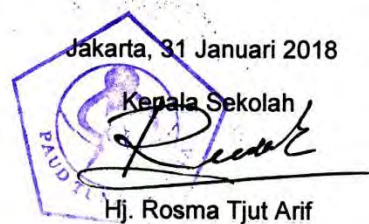 Jakarta, 31 Januari 2018
Kepala Sekolah
PAUD
Hj. Rosma Tjut Arif